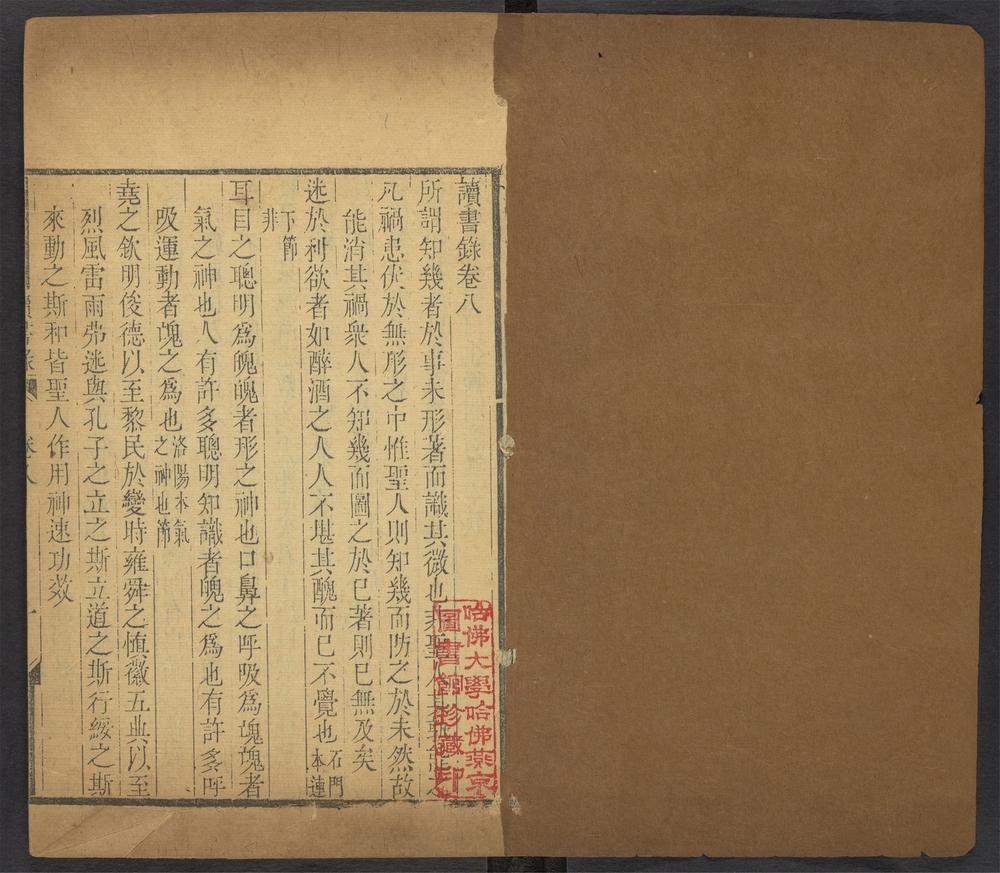 讀書錄卷八
所謂知幾者於事未形著而識其微也非聖人其孰能之
凡禍患伏於無形之中惟聖人則知幾而防之於未然故
能消其禍衆人不知幾而圖之於已著則已無及矣
迷於利欲者如醉酒之人人不堪其醜而已不覺也石門本連
下節非
耳目之聰明爲魄魄者形之神也口鼻之呼吸爲魂魂者
氣之神也人有許多聰明知識者魄之爲也有許多呼
吸運動者魂之爲也洛陽本氣之神也節
堯之欽明俊德以至黎民於變時雍舜之慎徽五典以至
烈風雷雨弗迷與孔子之立之斯立道之斯行綏之斯
來動之斯和皆聖人作用神速功效
卷八
一
哈佛大學哈佛燕京
圖書館珍藏印